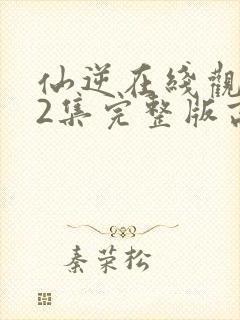 仙逆在綫觀
2集完整版
秦荣松